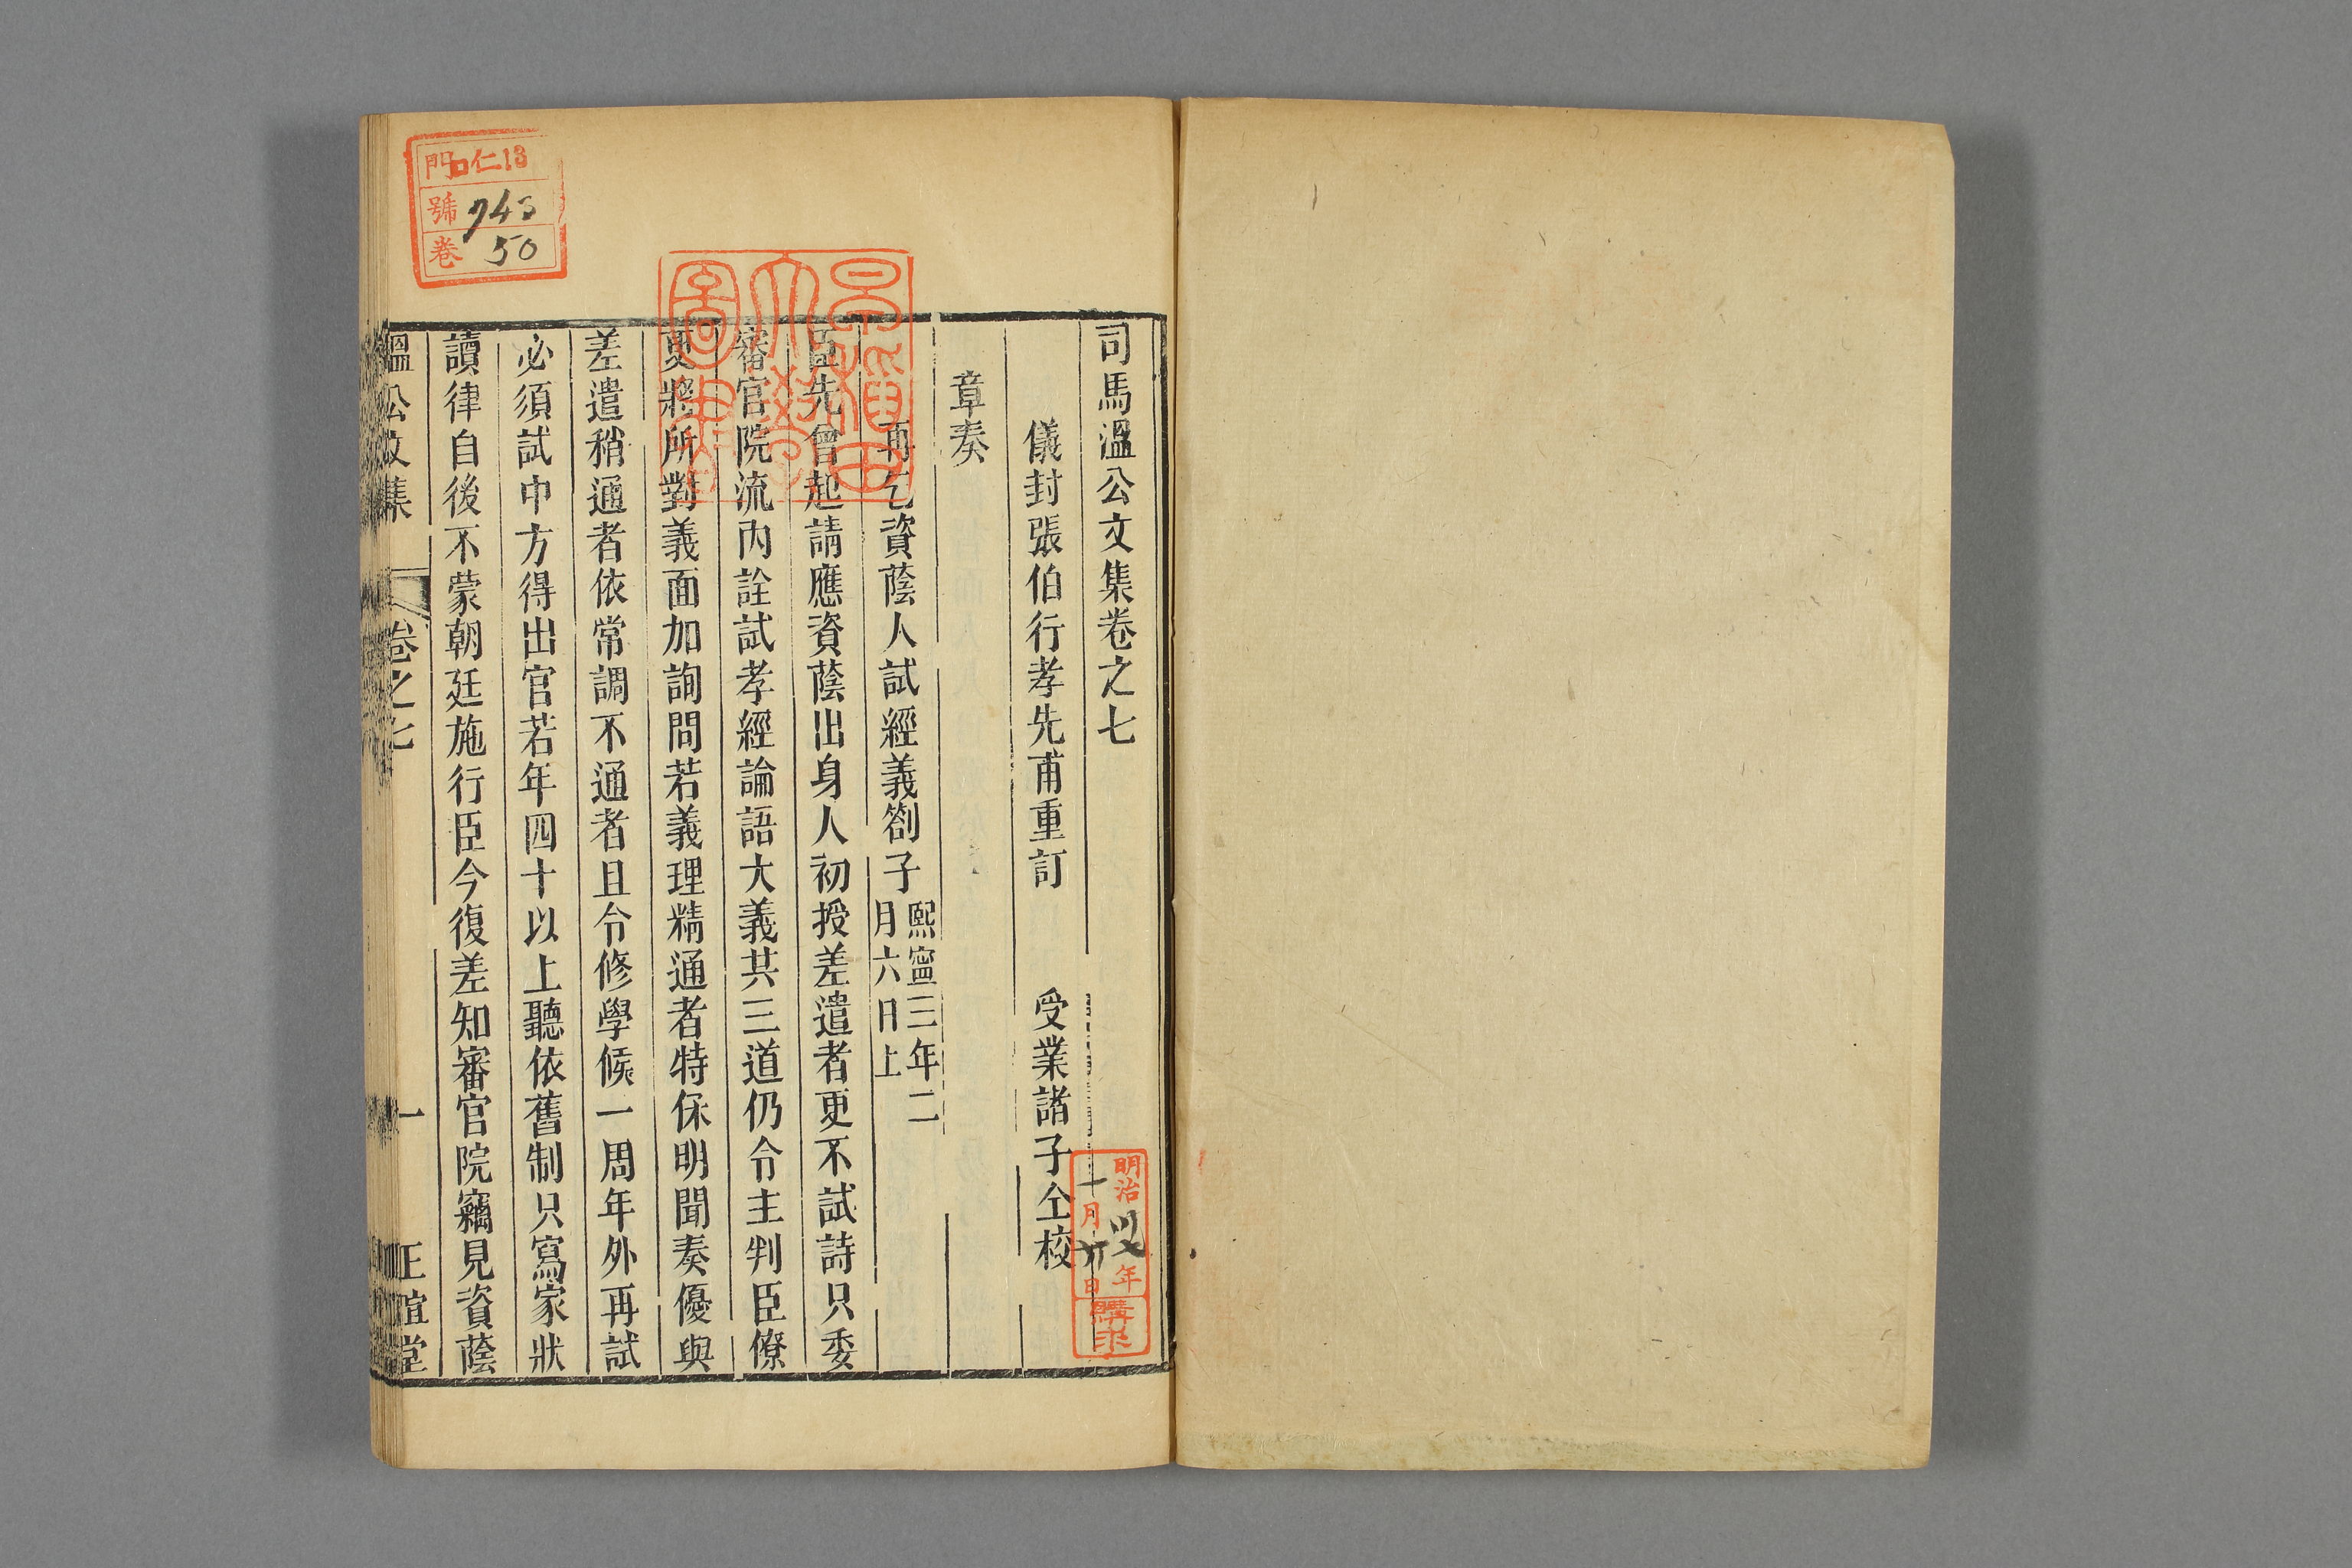 司馬溫公文集卷之七
儀封張伯行孝先甫重訂 受業諸子仝校
章奏
再乞資蔭人試經義劄子 熙寧三年二月六日上
臣先曾起請應資蔭出身人初授差遣者更不試詩只委
審官院流內詮試孝經論語大義共三道仍令主判臣僚
更將所對義面加詢問若義理精通者特保明聞奏優與
差遣稍通者依常調不通者且令修學候一周年外再試
必須試中方得出官若年四十以上聽依舊制只寫家狀
讀律自後不蒙朝廷施行臣今復差知審官院竊見資蔭
溫公文集 卷之七 一 正誼堂
門 仁13
號 743
卷 50
早稲田大學圖書
明治 年
十月 日
購求